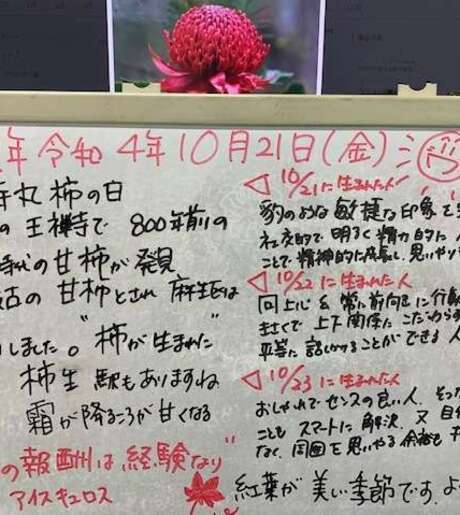 年 令和4年10月21日(金)
寺丸柿の日
の王禅寺で 800年前の
時代の甘柿が発見
最古の甘柿とされ 麻生区は
しました。"柿が生まれた"
柿生駅もありますね
霜が降るころが甘くなる
の報酬は経験なり"
アイスキュロス
10/21に生まれた人
豹のような敏捷な印象を
社交的で明るく精力的に
ことで精神的に成長し、思いやり
10/22に生まれた人
向上心を常に前向きに行動
まさくで上下関係にこだわらず
平等に話しかけることができる人
10/23に生まれた人
おしゃれでセンスの良い人。
ことも スマートに解決、又 自
なく、周囲を思いやる余裕も
紅葉が美い季節です。よ